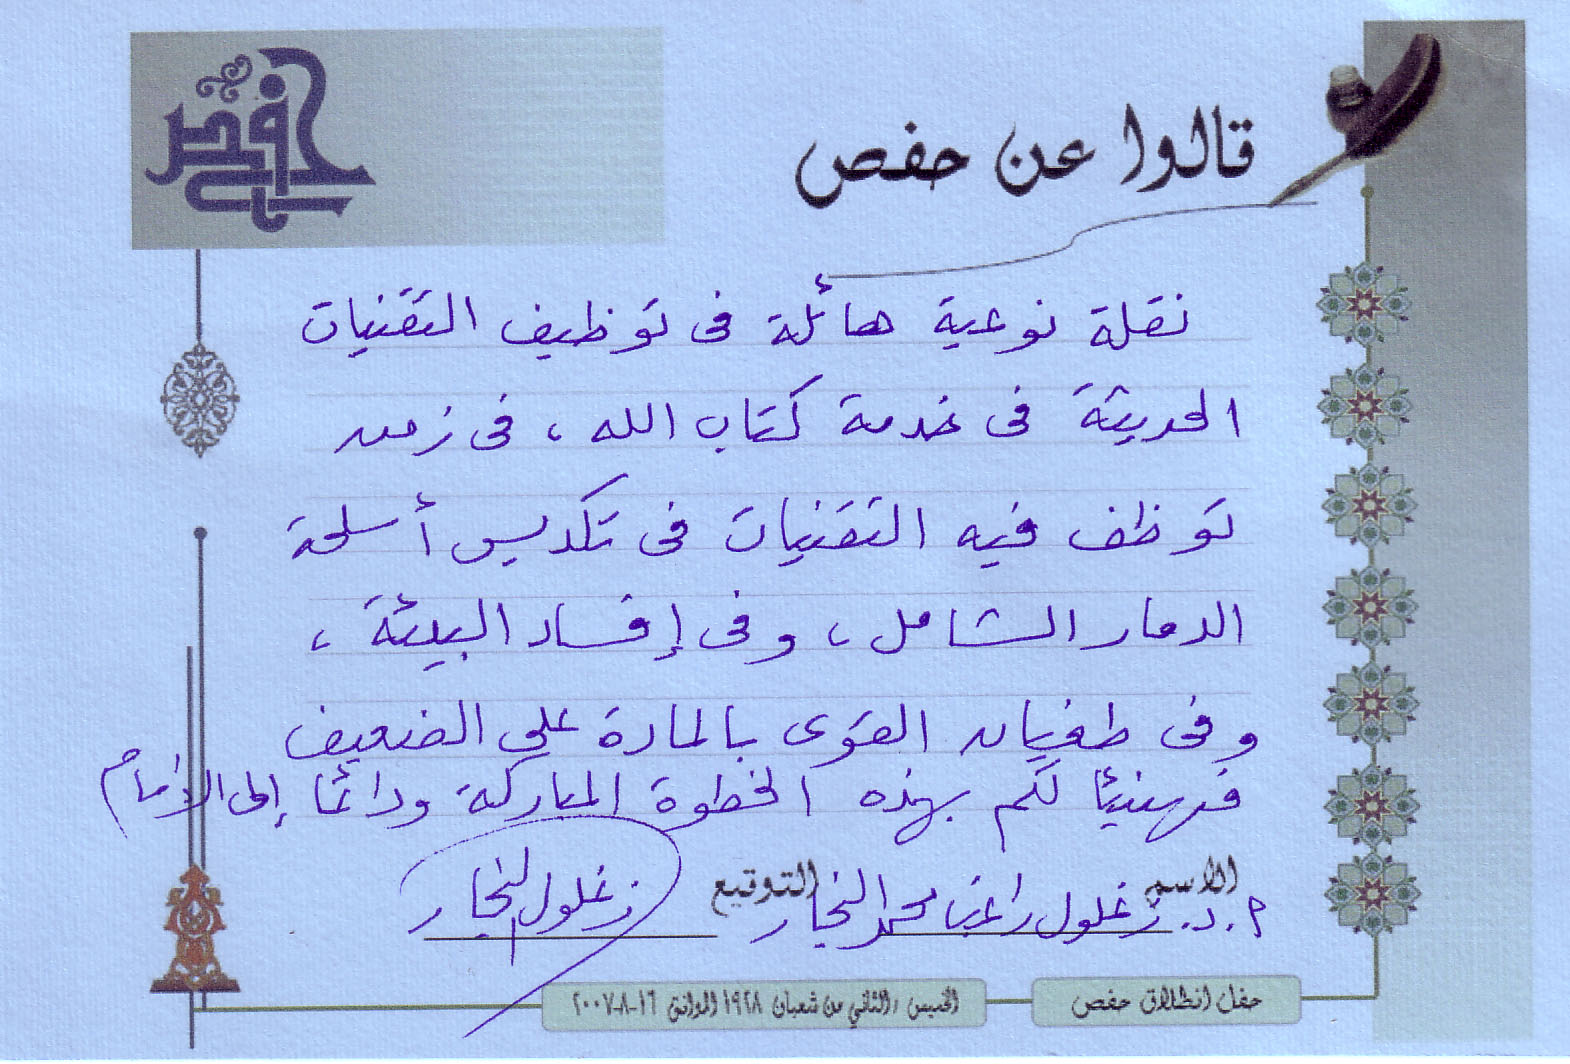 حفص
قالوا عن حفص
نقلة نوعية هائلة فى توظيف التقنيات
الحديثة فى خدمة كتاب الله ، فى زمن
توظف فيه التقنيات فى تكديس أسلحة
الدمار الشامل ، وفى إفساد البيئة ،
وفى طغيان القوى بالمادة على الضعيف
فهنيئا لكم بهذه الخطوة المباركة ودائما إلى الأمام
الاسم التوقيع
أ.د. زغلول راغب محمد النجار زغلول النجار
حفل انطلاق حفص
الخميس ، الثاني من شعبان ١٩٢٨ الموافق ١٦-٨-٢٠٠٧